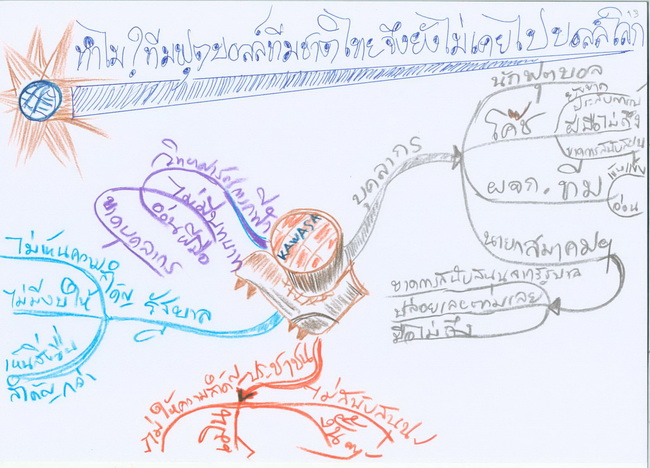 13
ทำไม ? ทีมฟุตบอลล์ทีมชาติไทยจึงยังไม่เคยไปบอลล์โลก
บุคลากร
นักฟุตบอล
โค้ช
ประสบการณ์
ฝีมือไม่ถึง
ขาดการสนับสนุน
ผจก.ทีม
อ่อน
นายกสมาคมฯ
ขาดการสนับสนุนจากรัฐบาล
ปล่อยเลยตามเลย
มือไม่ถึง
วิทยาศาสตร์การกีฬา
ไม่มีบทบาท
อ่อนฝีมือ
ขาดบุคลากร
KAWASA
รัฐบาล
ไม่เห็นความสำคัญ
ไม่มีงบให้
เห็นสิ่งอื่น
สำคัญกว่า
ประชาชน
ไม่ให้ความสำคัญ
ไม่สนับสนุน